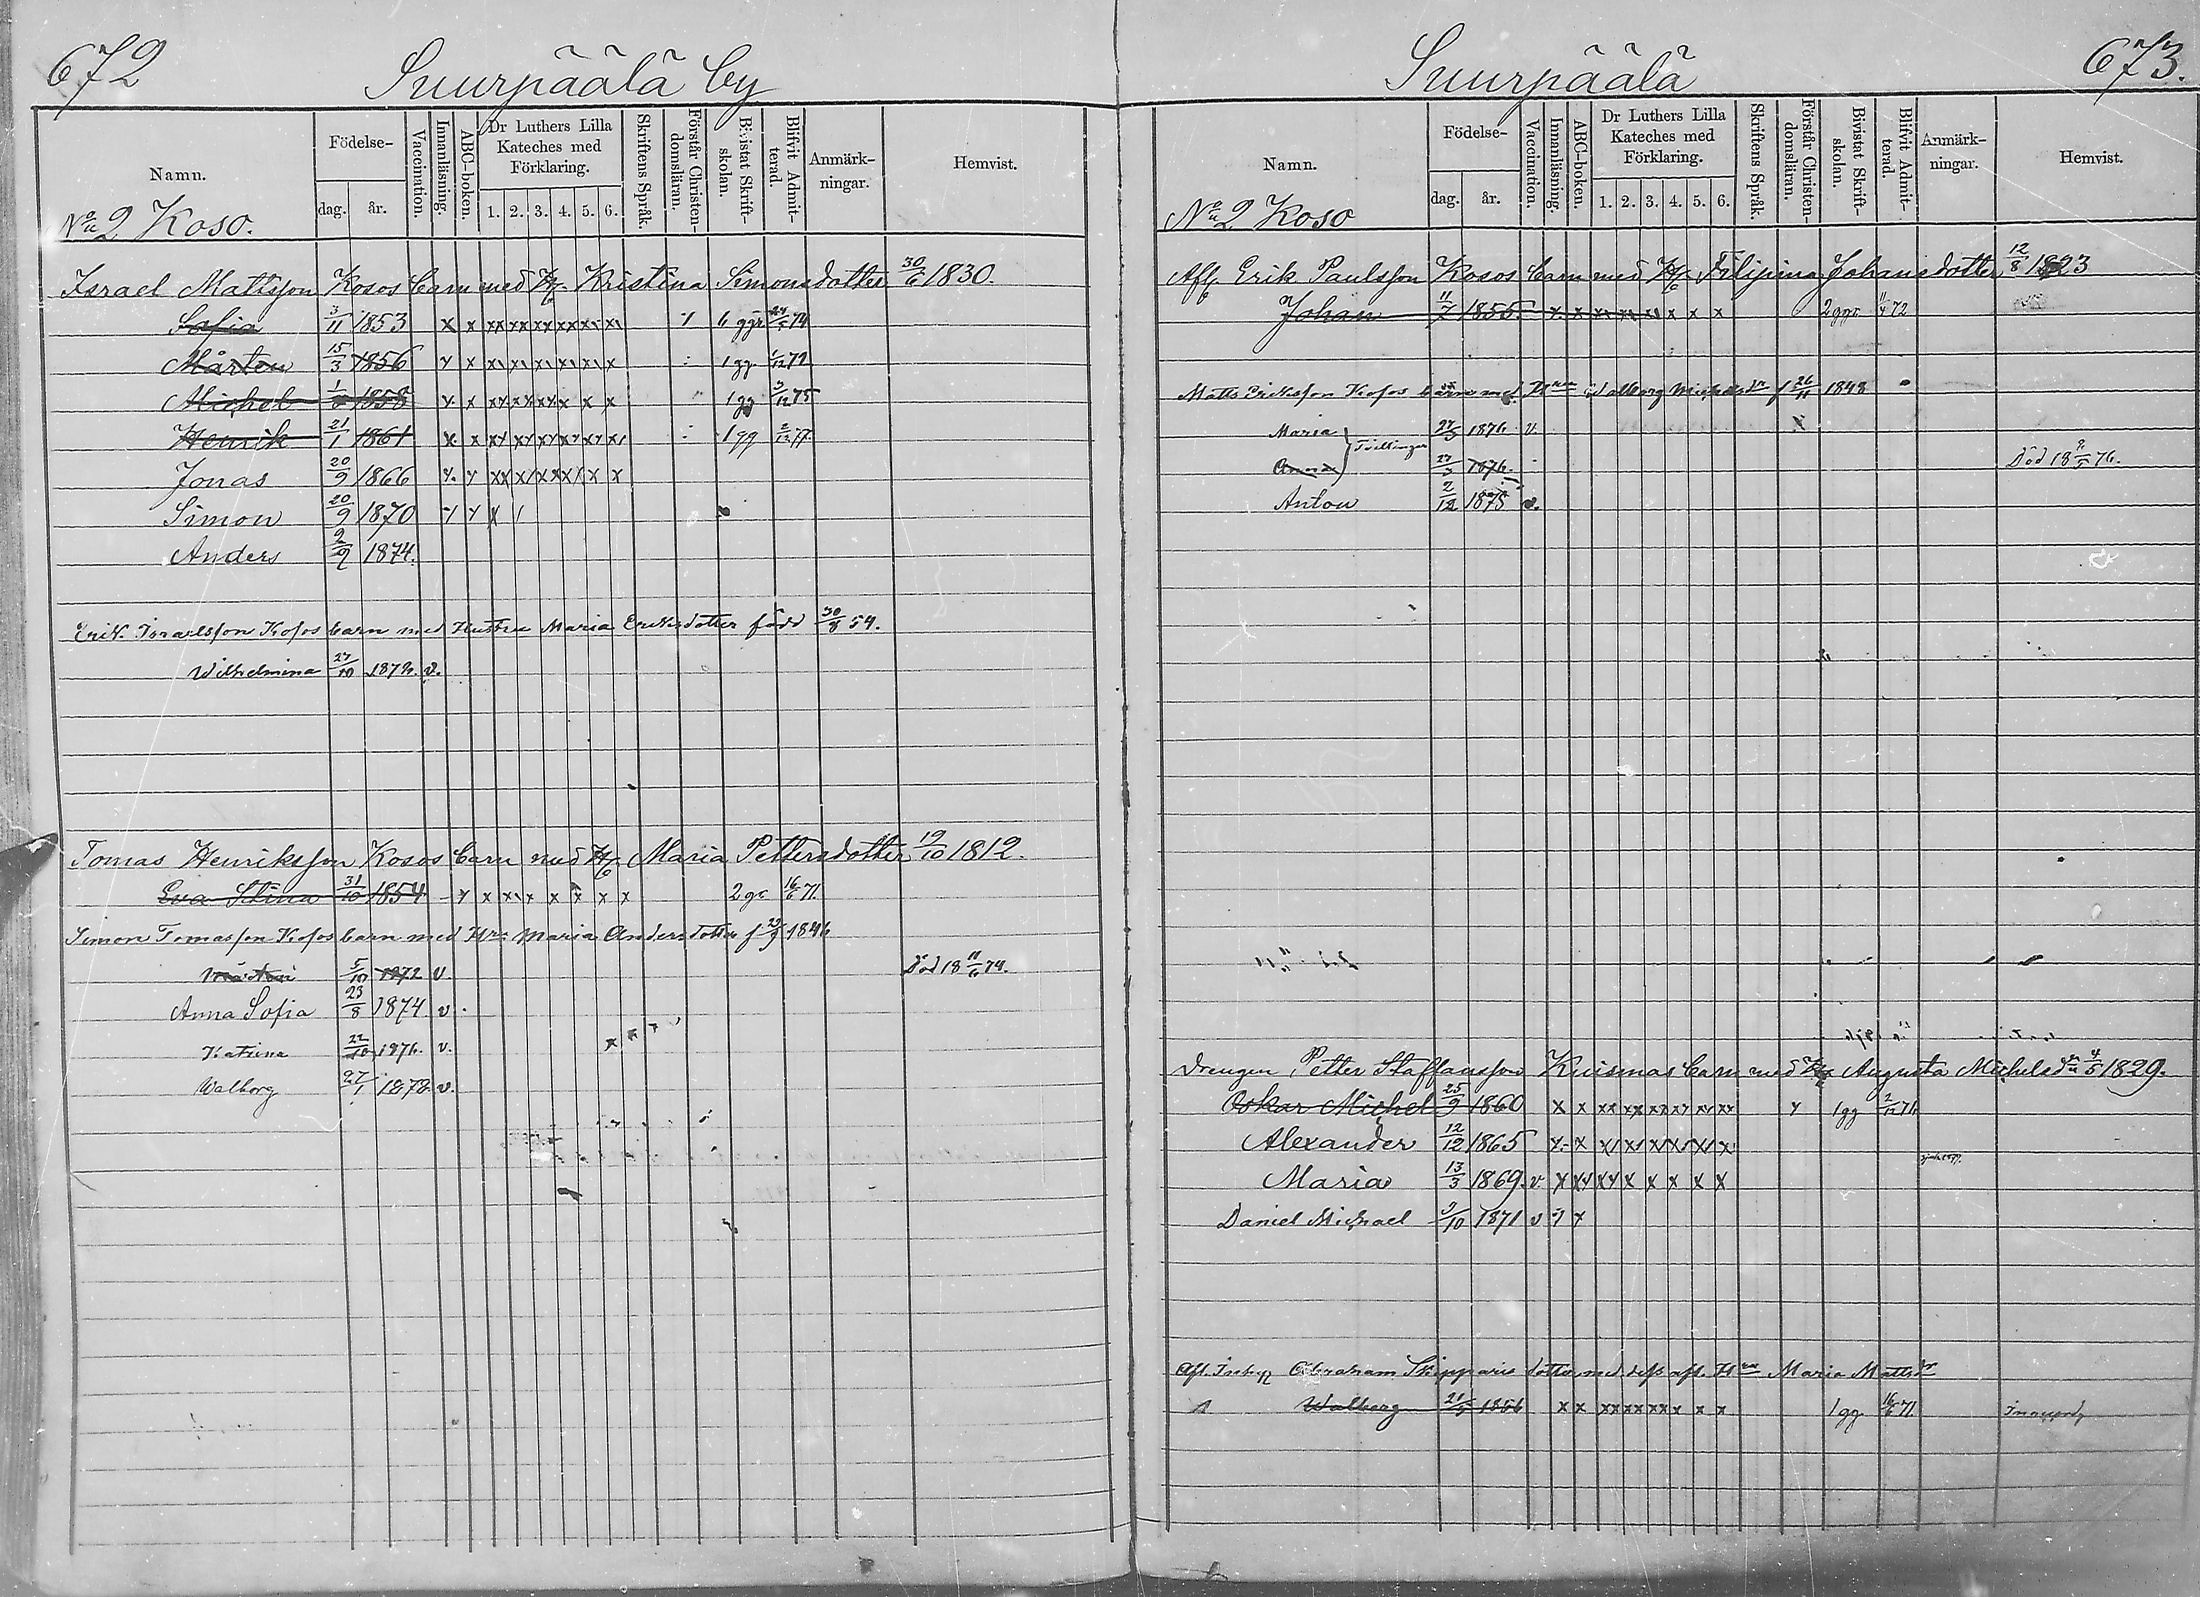 672
Suurpäälä by
Namn.
Födelse-
dag.
år.
Vaccination.
Innanläsning.
ABC-boken.
Dr Luthers Lilla
Kateches med
Förklaring.
1. 2. 3. 4. 5. 6.
Skriftens Språk.
Förstår Christen-
domsläran.
Bivistat Skrift-
skolan.
Blifvit Admit-
terad.
Anmärk-
ningar.
Hemvist.
No 2 Koso.
Israel Mattsson Kosos barn med H. Kristina Simonsdotter 30/6 1830.
Sofia 3/11 1853 x x xx xx xx xx x x 6 ggr 74
Mårten 15/3 1856 x x x x x x x x 1 gg. 1/12 72
Michel 1858 x x xx xx xx x x x 1 gg 3/12 75
Henrik 21/1 1861 x x xx xx xx xx xx x 1 gg
Jonas 20/9 1866 x x xx x/ xx x/ x x
Simon 20/9 1870 x x x /
Anders 2/9 1874.
Erik Israelsson Kosos barn med Hustru Maria Eriksdotter född 30/8 54.
Wilhelmina 27/10 187 v.
Tomas Henriksson Kosos barn med H. Maria Pettersdotter 19/10 1812.
Eva Stina 31/10 1854 x x xx x x x x 2 gr 16/6 71.
Simon Tomasson Kosos barn med Hru Maria Andersdotter f 1846
5/10 1872 v. Död 18 11/6 74.
Anna Sofia 23/8 1874 v.
Katrina 22/10 1876. v.
Walborg 27/1 1878 v.
Suurpäälä
673.
Namn.
Födelse-
dag.
år.
Vaccination.
Innanläsning.
ABC-boken.
Dr Luthers Lilla
Kateches med
Förklaring.
1. 2. 3. 4. 5. 6.
Skriftens Språk.
Förstår Christen-
domsläran.
Bivistat Skrift-
skolan.
Blifvit Admit-
terad.
Anmärk-
ningar.
Hemvist.
No 2 Koso
Afl. Erik Paulsson Kosos barn med H. Filipina Johansdotter 12/8 1823
Johan 11/7 1855. x x xx xx xx x x x 2 ggr 11/4 72
Matts Eriksson Kosos barn med Hrun Walborg Michelsdr f 26/11 1848
Maria 27/3 1876 v.
Tvillingar
Anna 27/3 1876. Död 18 76.
Anton 2/12 1878 v.
Drengen Petter Staffansson Kuismas barn med H. Augusta Michelsdr 4/5 1829.
Oskar Michel 25/9 1860 x x xx xx xx xx xx xx x 1 gg 2/12 76
Alexander 12/12 1865 x x x/ x/ x/ x/ x/ x
Maria 13/3 1869. v. x xx xx x x x x x
Daniel Michael 9/10 1871 v x x
Afl. Abraham Skipparis dotter med dess afl. Hru Maria Mattsdr
Walborg 21/5 1856 x x xx xx xx x x x 1 gg 16/6 71.